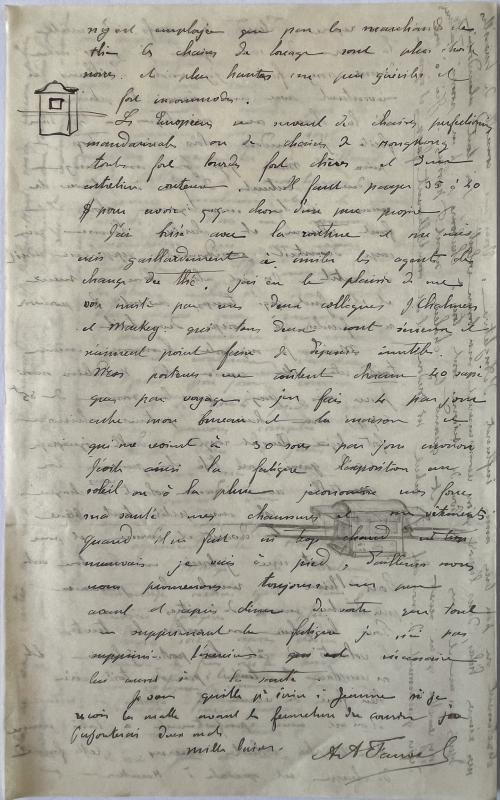 n'ypt employée que par les marchands de
thé les chaises de louage sont plus
noires et plus hautes un peu
fort incommodes.
Les Européens se servent de chaises
mandarinals ou de chaises de Hongkong
toutes fort lourdes fort chères et d'un
entretien couteux Il faut payer 35 à 40
$ pour avoir quelque chose d'un peu propre
J'ai brisé avec la routine et me suis
mis gaillardement à imiter les agents de
change du thé. j'ai eu le plaisir de me
voir imité par mes deux collègues J. Chalmers
et Mackey qui tous deux
n'aiment point faire de dépenses inutiles.
Mes porteurs me coûtent chacun 40 sapè
ques par voyage j'en fais 4 par jour
entre mon bureau et la maison
qui me revient à 30 sous par jour environ
J'évite ainsi la fatigue l'exposition au
soleil ou à la pluie j'économise mes forces
ma santé mes chaussures et mes vêtements
quand il ne fait ni trop chaud ni trop
mauvais je vais à pied, d'ailleurs nous
nous promenons toujours un peu
avant et après diner De sorte que tout
en supprimant la fatigue je n'ai pas
supprimé l'exercice qui est nécessaire
lui aussi à la santé.
à Jeanne si je
reçois la malle avant la fermeture du courrier j'y
ajouterai deux mots
mille baisers. A. A. Fauvel